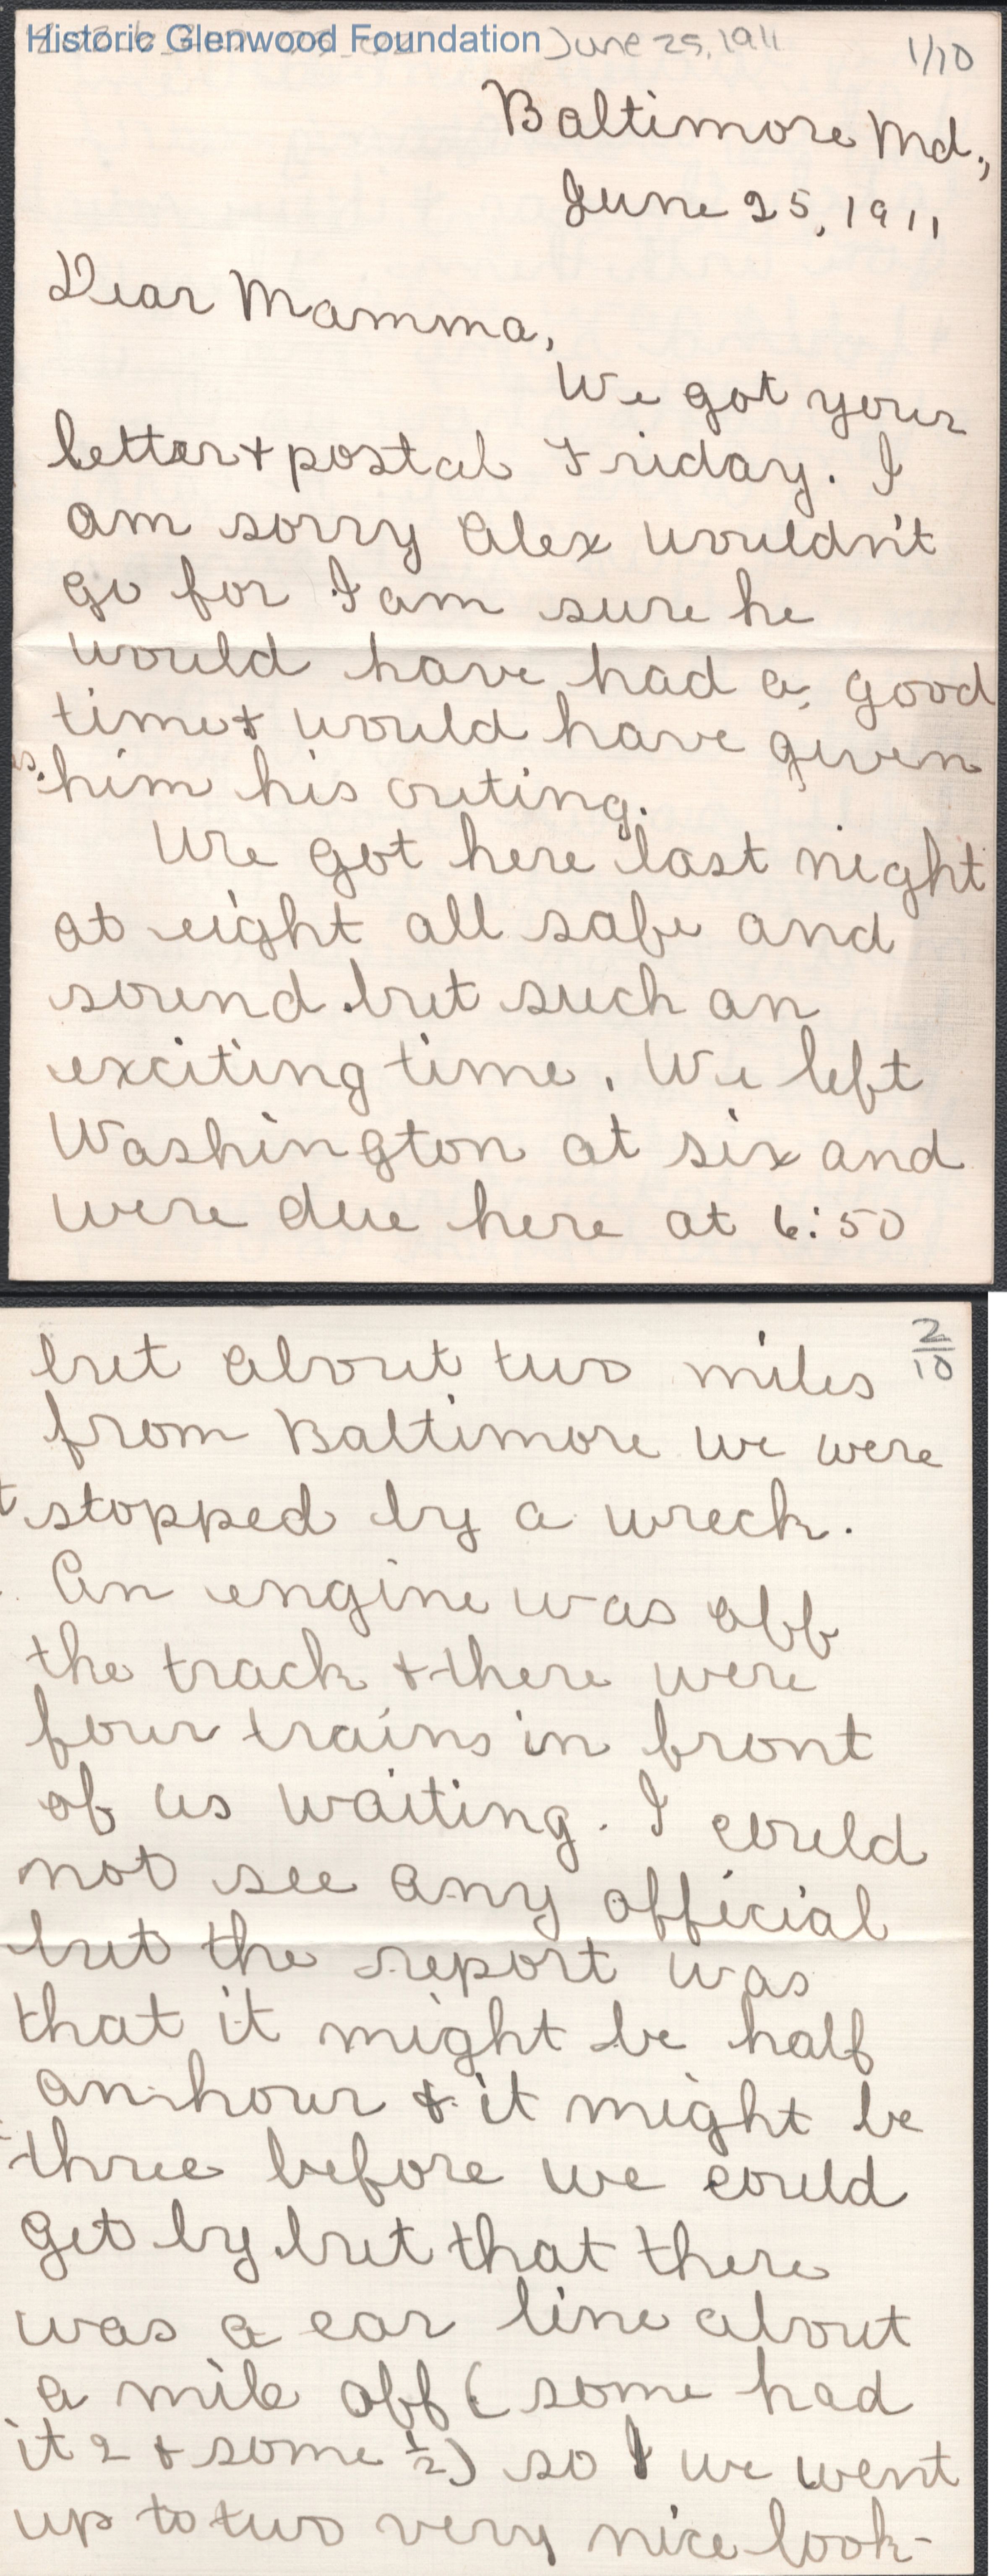 Historic Glenwood Foundation June 25, 1911 1/10
Baltimore Md.,
June 25, 1911
Dear Mamma,
We got your
letter + postal Friday. I
am sorry Alex wouldn't
go for I am sure he
would have had a good
time + would have given
him his outing.
We got here last night
at eight all safe and
sound but such an
exciting time. We left
Washington at six and
were due here at 6:50
2/10
but about two miles
from Baltimore we were
stopped by a wreck.
An engine was off
the track + there were
four trains in front
of us waiting. I could
not see any official
but the report was
that it might be half
an hour + it might be
three before we could
get by but that there
was a car line about
a mile off (some had
it 2 + some 1/2) so we went
up to two very nice look-